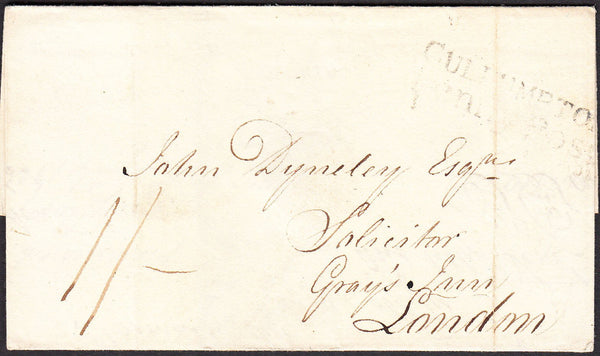 CULLUMPTON
Penny Post
John Dyneley Esqre
Solicitor
Gray's Inn
London
1/-